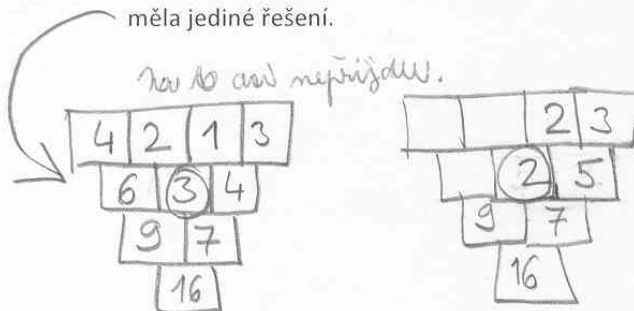 měla jediné řešení.
na to asi nepřijdu.
4 2 1 3
6 3 4
9 7
16
2 3
2 5
9 7
16